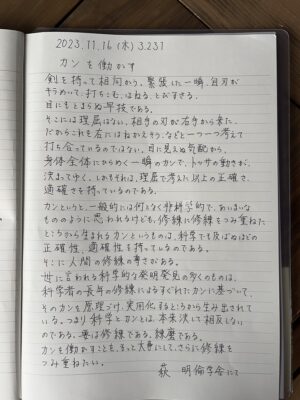 2023.11.16 (木) 3.231
カンを働かす
剣を持って相向かう。緊張した一瞬、白刃が
きらめいて、打ちこむ、はねる、とびすさる。
目にもとまらぬ早技である。
そこには理屈はない。相手の刃が右手から来た、
だからこれを左にはねかえそう、などと一つ一つ考えて
打ち合っているのではない。目に見えぬ気配から、
身体全体にひらめく一瞬のカンで、トッサの動きが
決まってゆく。しかもそれは、理屈で考えた以上の正確さ、
適確さを持っているのである。
カンというと、一般的には何となく非科学的で、あいまいな
もののように思われるけども、修練に修練をつみ重ねた
ところから生まれるカンというものは、科学でも及ばぬほどの
正確性、適確性を持っているのである。
そこに人間の修練の尊さがある。
世に言われる科学的な発明発見の多くのものは、
科学者の長年の修練によるすぐれたカンに基づいて、
そのカンを原理づけ、実用化するところから生み出されて
いる。つまり科学とカンとは、本来決して相反しない
のである。要は修練である。練磨である。
カンを働かすことを、もっと大事にして、さらに修練を
つみ重ねたい。
萩 明倫学舎にて